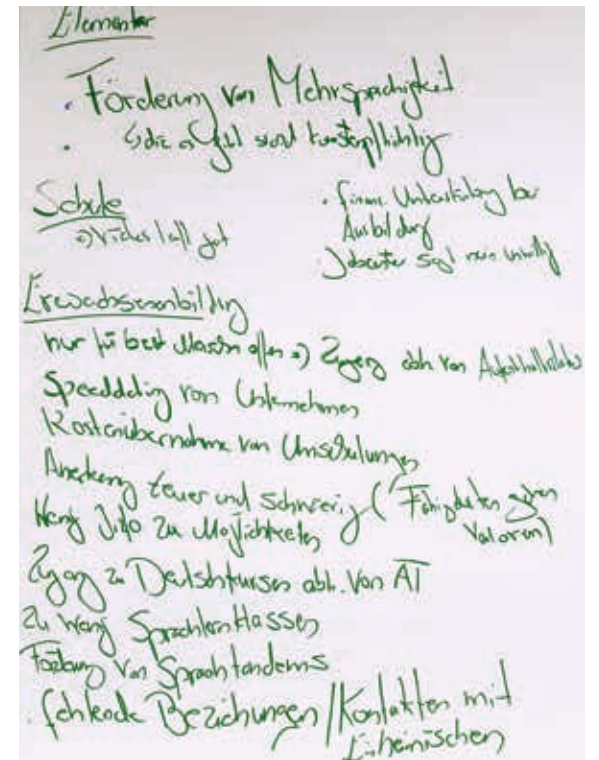 Elementar
• Förderung von Mehrsprachigkeit
• ↳ die sind kostenpflichtig
Schule
=> Vieles läuft gut
• finanz. Unterstützung bei
Ausbildung
Jobcenter sagt nein
Erwachsenenbildung
nur für best. offen => Zugang abh. von Aufenthaltsstatus
Speeddating von Unternehmen
Kostenübernahme von Umschulungen
Anerkennung teuer und schwierig (Fähigkeiten gehen
verloren)
Wenig Info zu Möglichkeiten
Zugang zu Deutschkursen abh. von AT
Zu wenig Sprachlernklassen
Förderung von Sprachtandems
• fehlende Beziehungen/Kontakten mit
Einheimischen